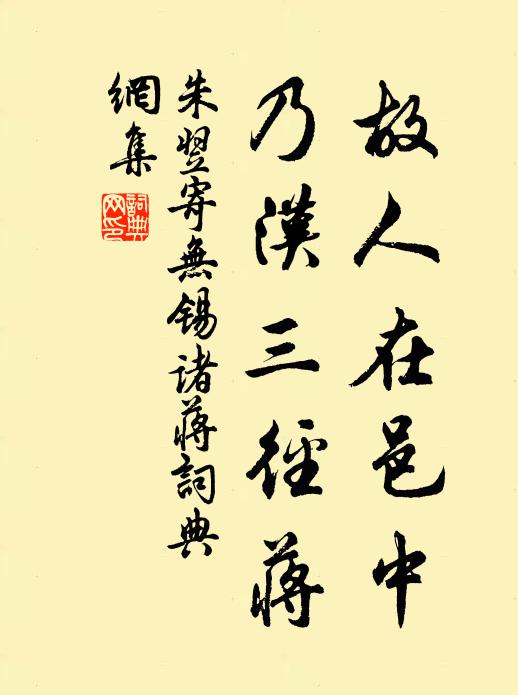 故人在邑中
乃漢三徑蔣
朱翌寄無錫诸蔣詞典
網集
詞典
网印